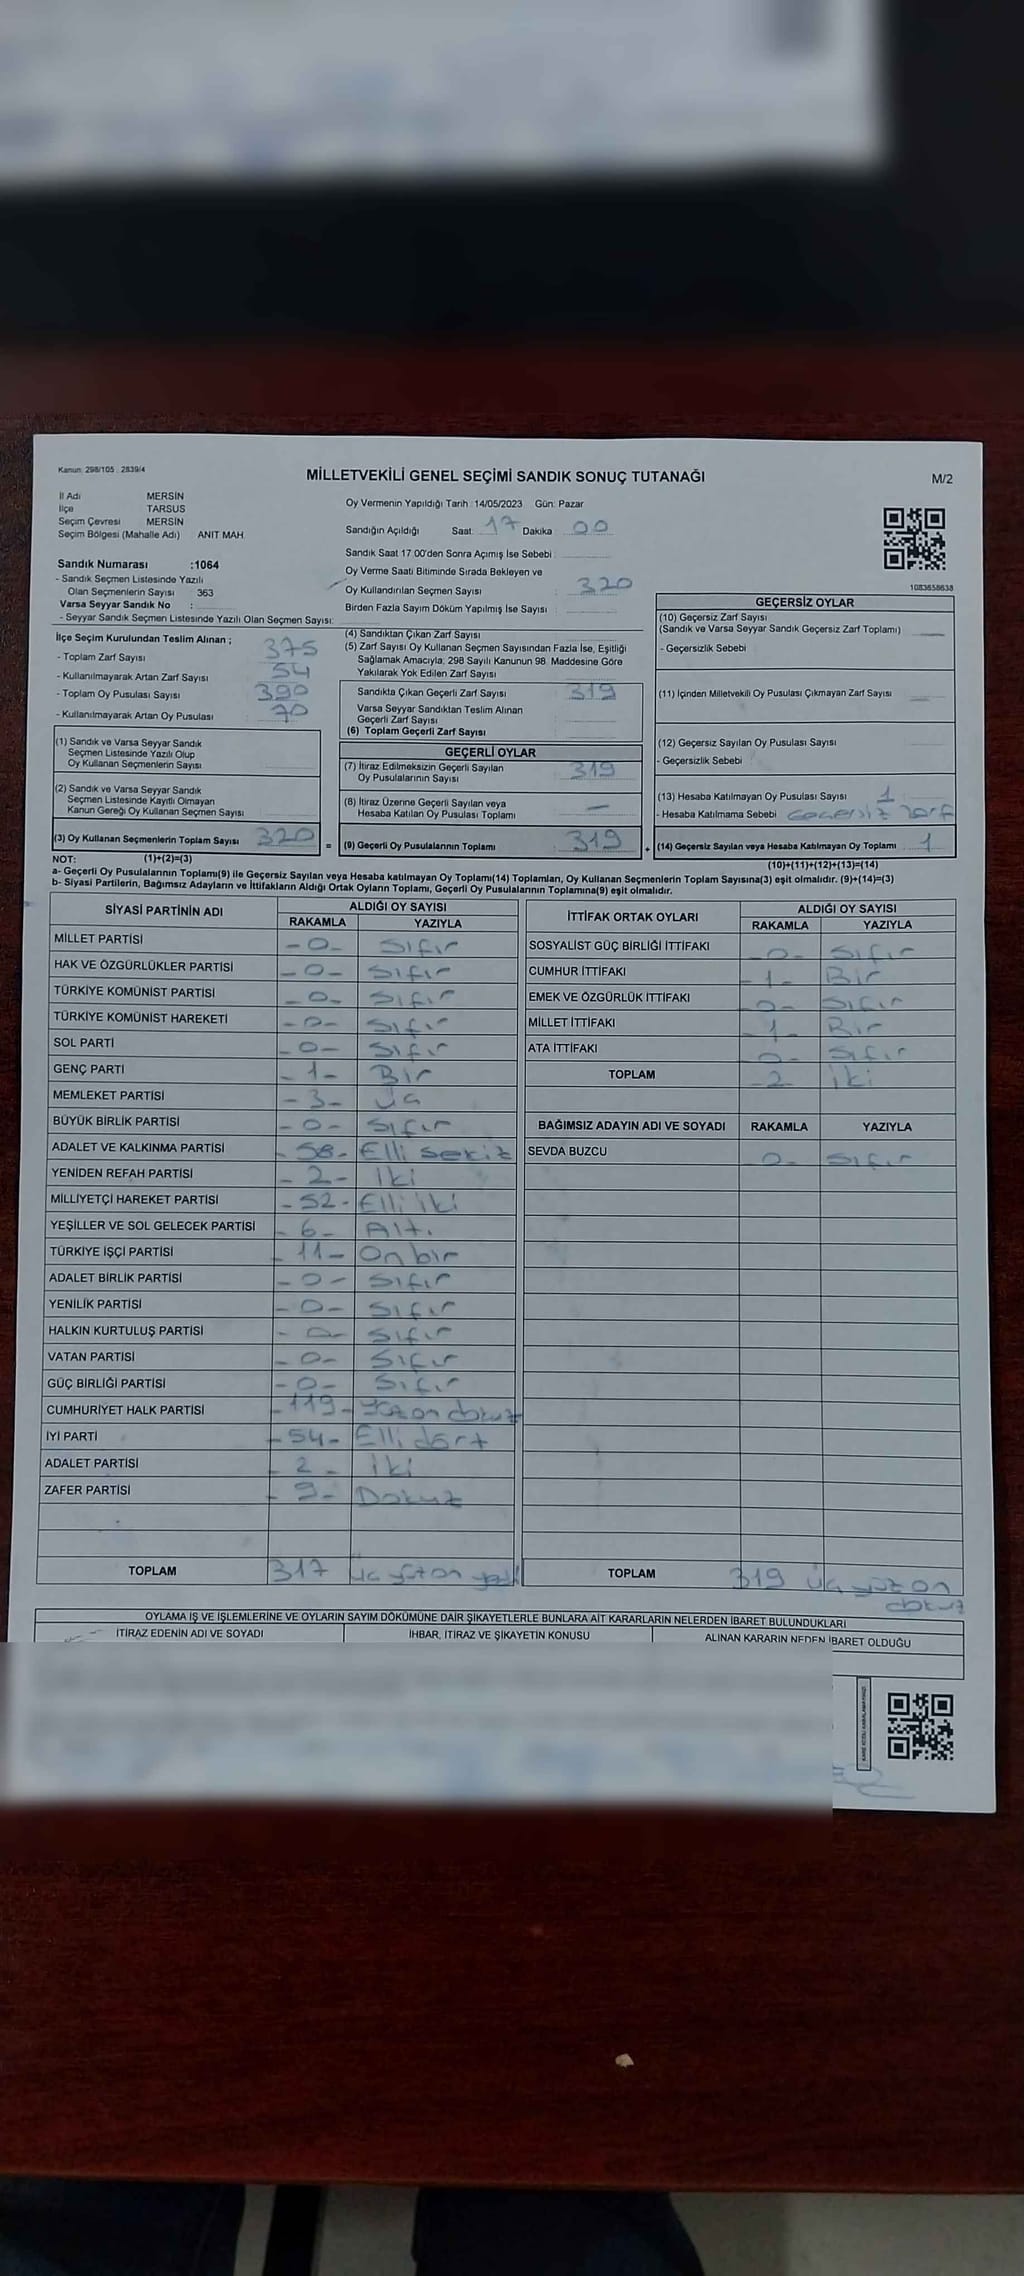 Kanun: 298/105 , 2839/4
MİLLETVEKİLİ GENEL SEÇİMİ SANDIK SONUÇ TUTANAĞI
M/2
İl Adı MERSİN
İlçe TARSUS
Seçim Çevresi MERSİN
Seçim Bölgesi (Mahalle Adı) ANIT MAH.
Oy Vermenin Yapıldığı Tarih :14/05/2023 Gün: Pazar
Sandığın Açıldığı Saat: 17 Dakika : 00
Sandık Saat 17.00'den Sonra Açımış İse Sebebi :
Oy Verme Saati Bitiminde Sırada Bekleyen ve
Oy Kullandırılan Seçmen Sayısı : 320
Birden Fazla Sayım Döküm Yapılmış İse Sayısı :
Sandık Numarası :1064
- Sandık Seçmen Listesinde Yazılı
Olan Seçmenlerin Sayısı 363
Varsa Seyyar Sandık No :
- Seyyar Sandık Seçmen Listesinde Yazılı Olan Seçmen Sayısı:
1083658638
İlçe Seçim Kurulundan Teslim Alınan ;
- Toplam Zarf Sayısı 375
- Kullanılmayarak Artan Zarf Sayısı 54
- Toplam Oy Pusulası Sayısı 390
- Kullanılmayarak Artan Oy Pusulası 70
(1) Sandık ve Varsa Seyyar Sandık
Seçmen Listesinde Yazılı Olup
Oy Kullanan Seçmenlerin Sayısı
(2) Sandık ve Varsa Seyyar Sandık
Seçmen Listesinde Kayıtlı Olmayan
Kanun Gereği Oy Kullanan Seçmen Sayısı
(3) Oy Kullanan Seçmenlerin Toplam Sayısı 320 =
(4) Sandıktan Çıkan Zarf Sayısı
(5) Zarf Sayısı Oy Kullanan Seçmen Sayısından Fazla İse, Eşitliği
Sağlamak Amacıyla; 298 Sayılı Kanunun 98. Maddesine Göre
Yakılarak Yok Edilen Zarf Sayısı
Sandıkta Çıkan Geçerli Zarf Sayısı 319
Varsa Seyyar Sandıktan Teslim Alınan
Geçerli Zarf Sayısı
(6) Toplam Geçerli Zarf Sayısı
GEÇERLİ OYLAR
(7) İtiraz Edilmeksizin Geçerli Sayılan
Oy Pusulalarının Sayısı 319
(8) İtiraz Üzerine Geçerli Sayılan veya
Hesaba Katılan Oy Pusulası Toplamı —
(9) Geçerli Oy Pusulalarının Toplamı 319 +
GEÇERSİZ OYLAR
(10) Geçersiz Zarf Sayısı
(Sandık ve Varsa Seyyar Sandık Geçersiz Zarf Toplamı) —
- Geçersizlik Sebebi
(11) İçinden Milletvekili Oy Pusulası Çıkmayan Zarf Sayısı
(12) Geçersiz Sayılan Oy Pusulası Sayısı
- Geçersizlik Sebebi
(13) Hesaba Katılmayan Oy Pusulası Sayısı 1
- Hesaba Katılmama Sebebi Geçersiz zarf
(14) Geçersiz Sayılan veya Hesaba Katılmayan Oy Toplamı 1
NOT: (1)+(2)=(3) (10)+(11)+(12)+(13)=(14)
a- Geçerli Oy Pusulalarının Toplamı(9) ile Geçersiz Sayılan veya Hesaba katılmayan Oy Toplamı(14) Toplamları, Oy Kullanan Seçmenlerin Toplam Sayısına(3) eşit olmalıdır. (9)+(14)=(3)
b- Siyasi Partilerin, Bağımsız Adayların ve İttifakların Aldığı Ortak Oyların Toplamı, Geçerli Oy Pusulalarının Toplamına(9) eşit olmalıdır.
SİYASİ PARTİNİN ADI ALDIĞI OY SAYISI
RAKAMLA YAZIYLA
MİLLET PARTİSİ -0- Sıfır
HAK VE ÖZGÜRLÜKLER PARTİSİ -0- Sıfır
TÜRKİYE KOMÜNİST PARTİSİ -0- Sıfır
TÜRKİYE KOMÜNİST HAREKETİ -0- Sıfır
SOL PARTİ -0- Sıfır
GENÇ PARTİ -1- Bir
MEMLEKET PARTİSİ -3- Üç
BÜYÜK BİRLİK PARTİSİ -0- Sıfır
ADALET VE KALKINMA PARTİSİ -58- Elli sekiz
YENİDEN REFAH PARTİSİ -2- İki
MİLLİYETÇİ HAREKET PARTİSİ -52- Elli iki
YEŞİLLER VE SOL GELECEK PARTİSİ -6- Altı
TÜRKİYE İŞÇİ PARTİSİ -11- On bir
ADALET BİRLİK PARTİSİ -0- Sıfır
YENİLİK PARTİSİ -0- Sıfır
HALKIN KURTULUŞ PARTİSİ -0- Sıfır
VATAN PARTİSİ -0- Sıfır
GÜÇ BİRLİĞİ PARTİSİ -0- Sıfır
CUMHURİYET HALK PARTİSİ -119- Yüz on dokuz
İYİ PARTİ -54- Elli dört
ADALET PARTİSİ -2- İki
ZAFER PARTİSİ -9- Dokuz
TOPLAM 317 Üç yüz on yedi
İTTİFAK ORTAK OYLARI ALDIĞI OY SAYISI
RAKAMLA YAZIYLA
SOSYALİST GÜÇ BİRLİĞİ İTTİFAKI -0- Sıfır
CUMHUR İTTİFAKI -1- Bir
EMEK VE ÖZGÜRLÜK İTTİFAKI -0- Sıfır
MİLLET İTTİFAKI -1- Bir
ATA İTTİFAKI -0- Sıfır
TOPLAM -2- İki
BAĞIMSIZ ADAYIN ADI VE SOYADI RAKAMLA YAZIYLA
SEVDA BUZCU -0- Sıfır
TOPLAM 319 Üç yüz on
dokuz
OYLAMA İŞ VE İŞLEMLERİNE VE OYLARIN SAYIM DÖKÜMÜNE DAİR ŞİKAYETLERLE BUNLARA AİT KARARLARIN NELERDEN İBARET BULUNDUKLARI
İTİRAZ EDENİN ADI VE SOYADI İHBAR, İTİRAZ VE ŞİKAYETİN KONUSU ALINAN KARARIN NEDEN İBARET OLDUĞU